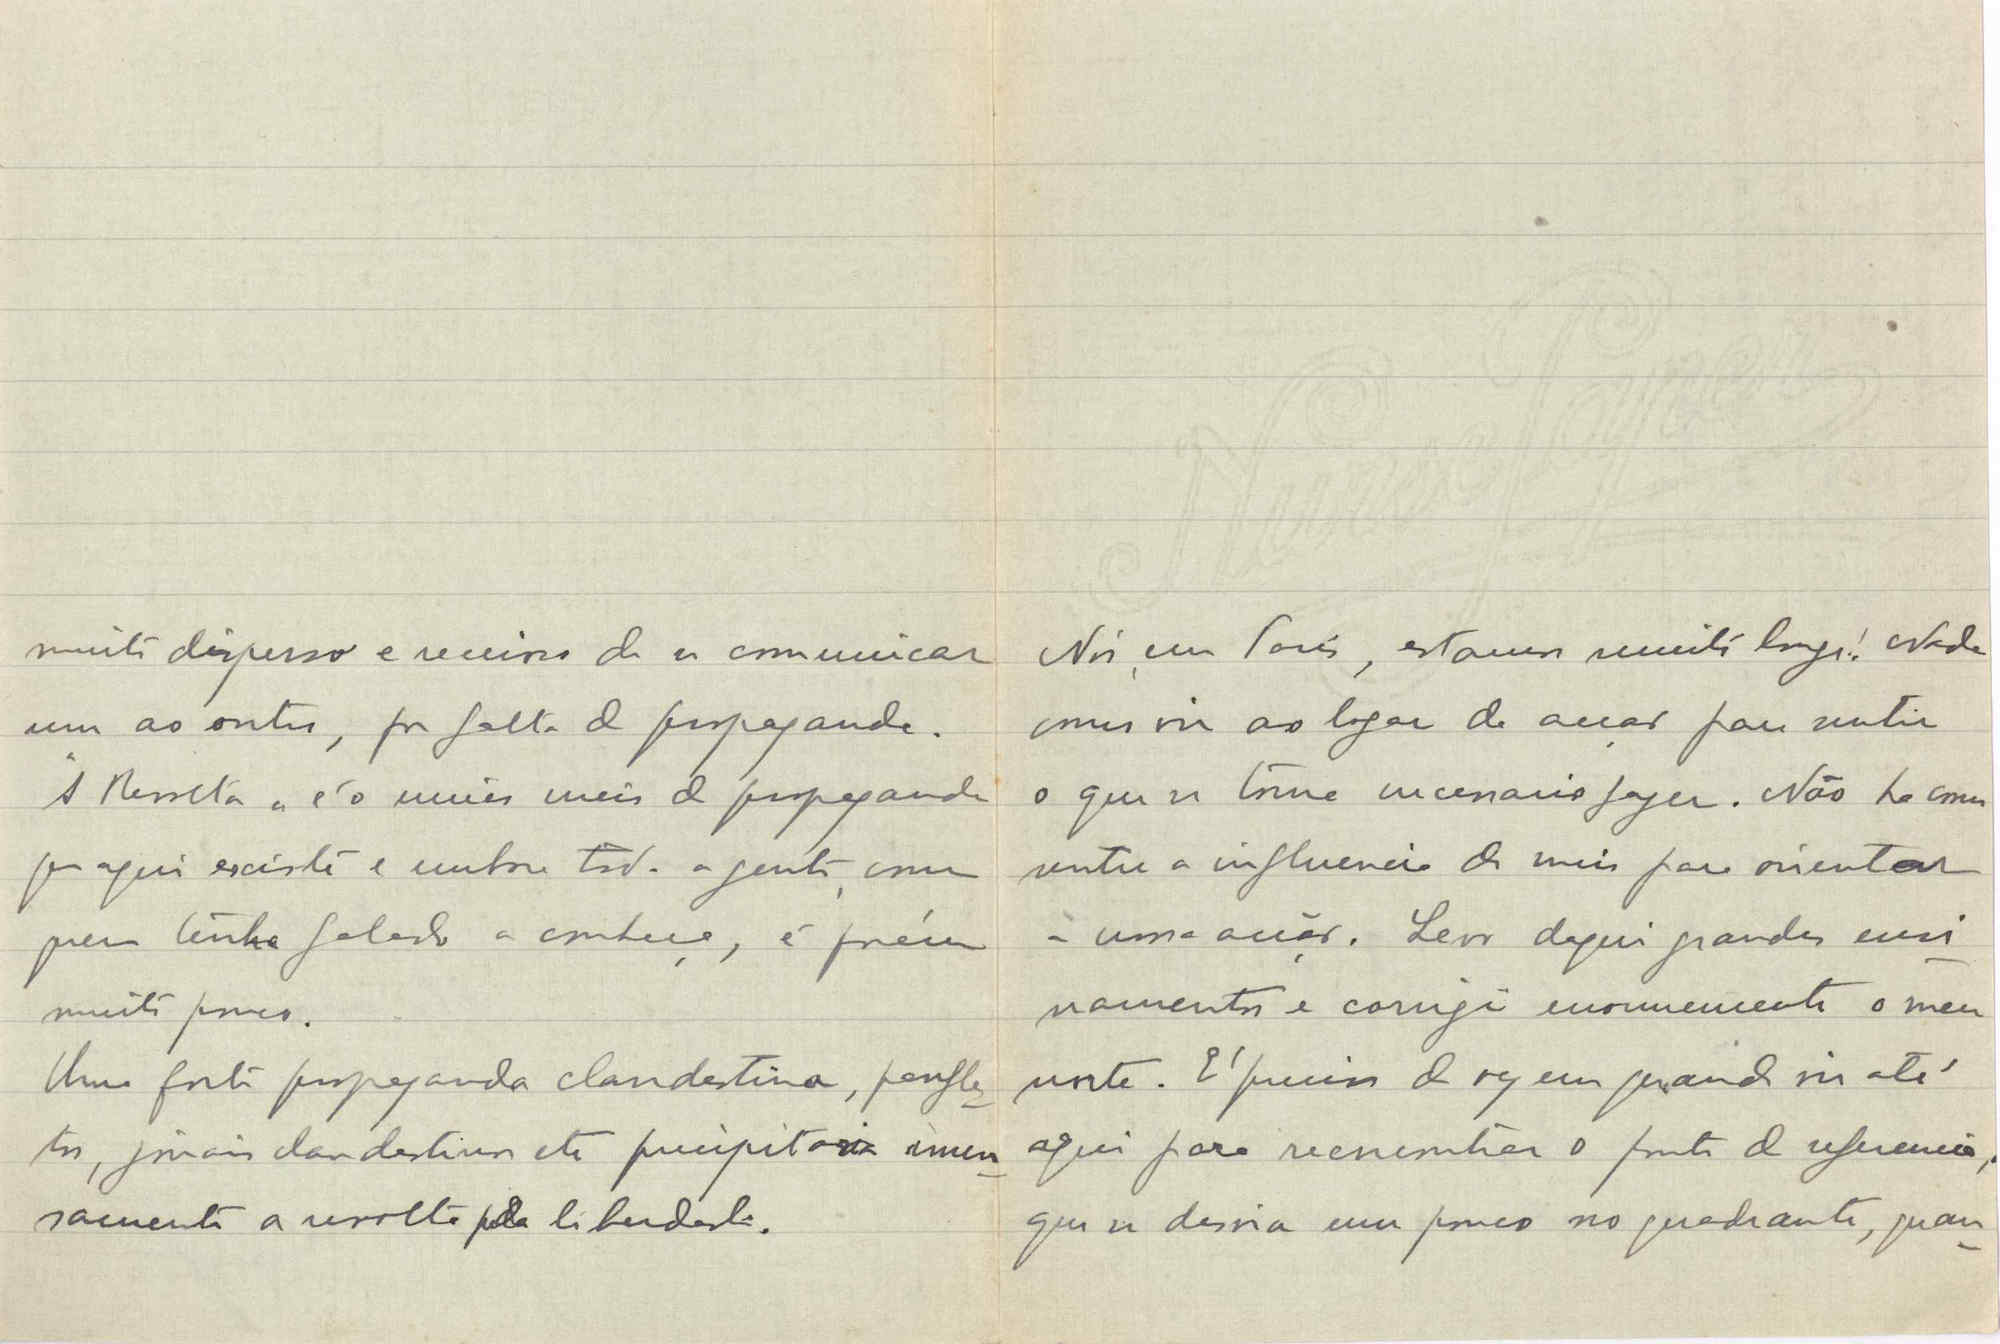 muito disperso e receioso de se comunicar
um ao outro, por falta de propaganda.
"A Revolta" é o unico meio de propaganda
que aqui existe e embora toda a gente, com
quem tenho falado a conheça, é porém
muito pouco.
Uma forte propaganda clandestina, panfle-
tos, jornais clandestinos etc precipitaria imen-
samente a revolta pela liberdade.
Nós, em Paris, estamos muito longe! Nada
como vir ao logar da acção para sentir
o que se torna necessario fazer. Não ha como
sentir a influencia do meio para orientar
a uma acção. Levo daqui grandes ensi-
namentos e corrigi enormemente o meu
norte. É preciso de vez em quando vir até
aqui para reencontrar o ponto de referencia,
que se desvia um pouco no quadrante, quan-